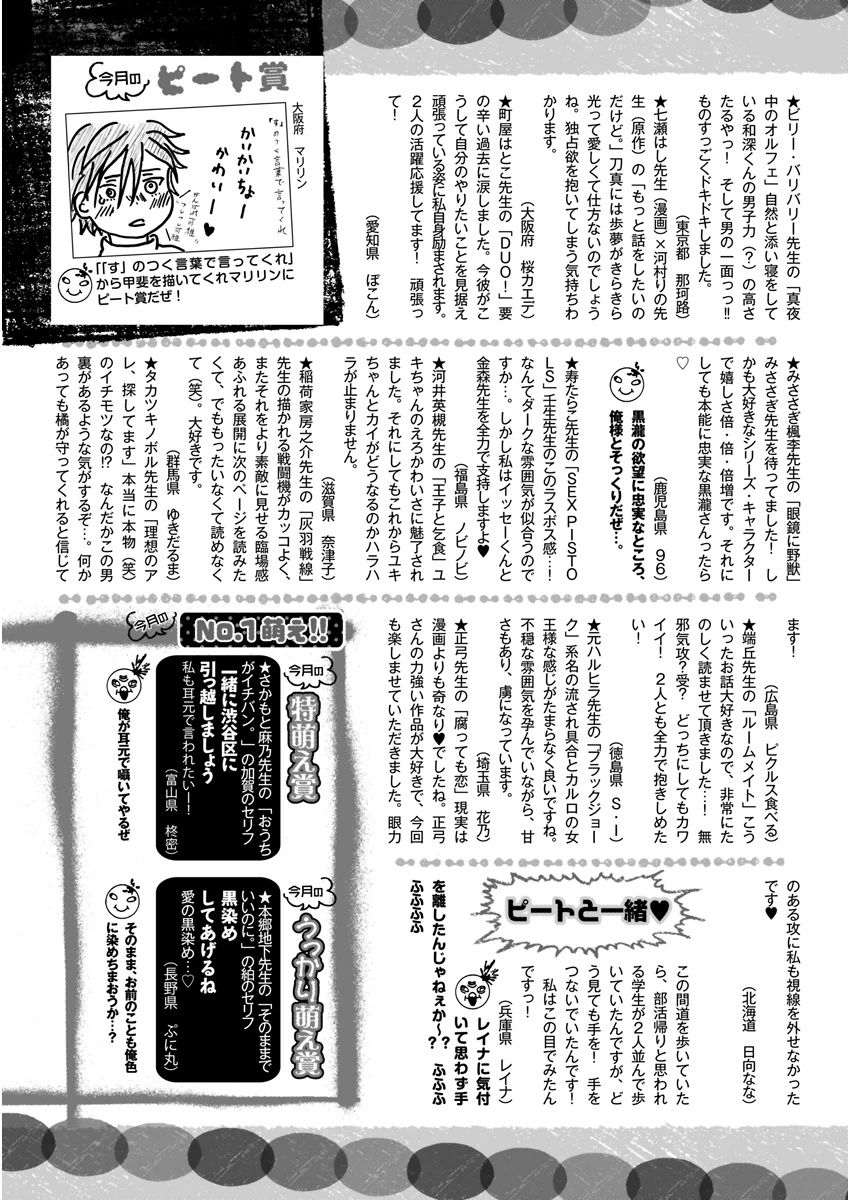 ★ビリー・バリバリー先生の「真夜
中のオルフェ」自然と添い寝をして
いる和深くんの男子力（？）の高さ
たるやっ！　そして男の一面っっ!!
ものすっごくドキドキしました。
（東京都　那珂路）
★七瀬はし先生（漫画）×河村りの先
生（原作）の「もっと話をしたいの
だけど。」刀真には歩夢がきらきら
光って愛しくて仕方ないのでしょう
ね。独占欲を抱いてしまう気持ちわ
かります。
（大阪府　桜カエデ）
★町屋はとこ先生の「ＤＵＯ！」要
の辛い過去に涙しました。今彼がこ
うして自分のやりたいことを見据え
頑張っている姿に私自身励まされます。
２人の活躍応援してます！　頑張っ
て！
（愛知県　ぽこん）
今月の
ピート賞
大阪府　マリリン
「す」のつく言葉で言ってくれ
かいかいちょー
かわいー♥
「「す」のつく言葉で言ってくれ」
から甲斐を描いてくれマリリンに
ピート賞だぜ！
★みささぎ楓李先生の「眼鏡に野獣」
みささぎ先生を待ってました！　し
かも大好きなシリーズ・キャラクター
で嬉しさ倍・倍・倍増です。それに
しても本能に忠実な黒瀧さんったら
♡
（鹿児島県　９６）
黒瀧の欲望に忠実なところ、
俺様とそっくりだぜ…。
★寿たらこ先生の「ＳＥＸ ＰＩＳＴＯ
ＬＳ」壬生先生のこのラスボス感…！
なんてダークな雰囲気が似合うので
すか…。しかし私はイッセーくんと
金森先生を全力で支持しますよ♥
（福島県　ノビノビ）
★河井英槻先生の「王子と乞食」ユ
キちゃんのえろかわいさに魅了され
ました。それにしてもこれからユキ
ちゃんとカイがどうなるのかハラハ
ラが止まりません。
（滋賀県　奈津子）
★稲荷家房之介先生の「灰羽戦線」
先生の描かれる戦闘機がカッコよく、
またそれをより素敵に見せる臨場感
あふれる展開に次のページを読みた
くて、でももったいなくて読めなく
て（笑）。大好きです。
（群馬県　ゆきだるま）
★タカツキノボル先生の「理想のア
レ、探してます」本当に本物（笑）
のイチモツなの!?　なんだかこの男
裏があるような気がするぞ…。何か
あっても橘が守ってくれると信じて
ます！
（広島県　ピクルス食べる）
★端丘先生の「ルームメイト」こう
いったお話大好きなので、非常にた
のしく読ませて頂きました…！　無
邪気攻？受？　どっちにしてもカワ
イイ！　２人とも全力で抱きしめた
い！
（徳島県　Ｓ・Ｉ）
★元ハルヒラ先生の「ブラックジョー
ク」系名の流され具合とカルロの女
王様な感じがたまらなく良いですね。
不穏な雰囲気を孕んでいながら、甘
さもあり、虜になっています。
（埼玉県　花乃）
★正弓先生の「腐っても恋」現実は
漫画よりも奇なり♥でしたね。正弓
さんの力強い作品が大好きで、今回
も楽しませていただきました。眼力
のある攻に私も視線を外せなかった
です♥
（北海道　日向なな）
ピートと一緒♥
この間道を歩いていた
ら、部活帰りと思われ
る学生が２人並んで歩
いていたんですが、ど
う見ても手を！　手を
つないでいたんです！
私はこの目でみたん
ですっ！
（兵庫県　レイナ）
レイナに気付
いて思わず手
を離したんじゃねぇか～？　ふふふ
ふふふふ
今月の
No.1萌え!!
今月の
特萌え賞
★さかもと麻乃先生の「おうち
がイチバン。」の加賀のセリフ
一緒に渋谷区に
引っ越しましょう
私も耳元で言われたいー！
（富山県　柊密）
俺が耳元で囁いてやるぜ
今月の
うっかり萌え賞
★本郷地下先生の「そのままで
いいのに。」の紺のセリフ
黒染め
してあげるね
愛の黒染め…♡
（長野県　ぷに丸）
そのまま、お前のことも俺色
に染めちまおうか…？